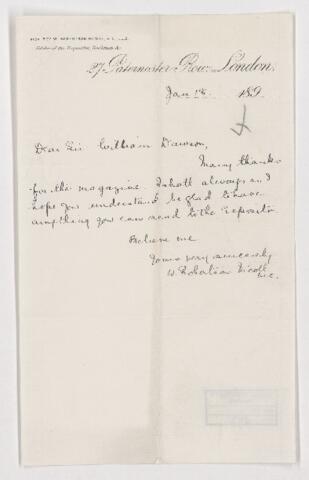 Editor of the Expositor, Bookman &c
27 Paternoster Row, London,
Jan 18. 189
4
Dear Sir William Dawson,
Many thanks
for the magazine. I shall always and
hope you understand be glad to have
anything you can send to the Expositor
Believe me
Yours very sincerely
W. Robertson Nicoll